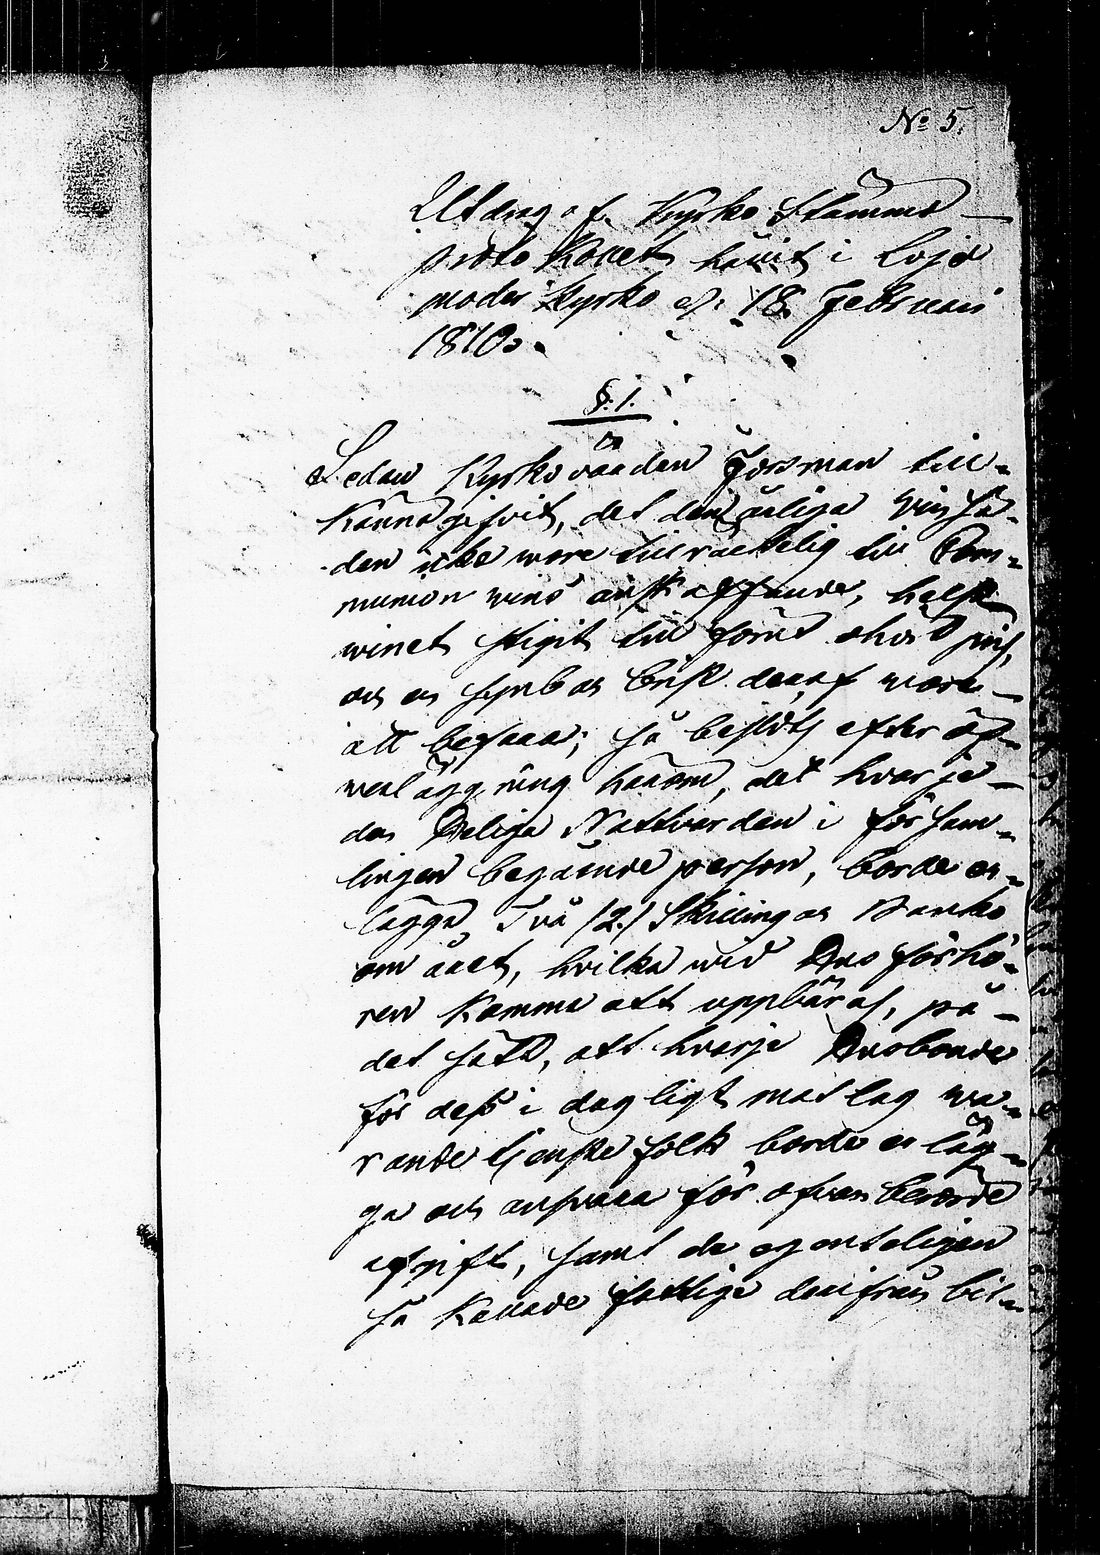 No 5.
Utdrag af Kyrko Stämmo
protokollet hållit i Lojo
moder Kyrko d: 18 Februari
1810.
§. 1.
Sedan Kyrkovärden Forsman till-
kännagifvit, det den årliga Winsä-
den icke wore tillräckelig till Com-
munion wins anskaffande, helst
winet stigit till förut ohördt pris,
och en synbar brist deraf wore
att befara; så beslöts efter öf-
verläggning härom, det hvarje
den Heliga Nattvarden i försam-
lingen begående person, borde er-
lägga Två /2./ Skillingar Banko
om året, hvilka wid Husförhö-
ren komma att uppbäras, på
det sätt, att hvarje Husbonde
för dess i dagligt matlag wa-
rande tjenstefolk borde erläg-
ga och ansvara för ofvanberörde
afgift, samt de egenteligen
så kallade fattige derifrån bli-